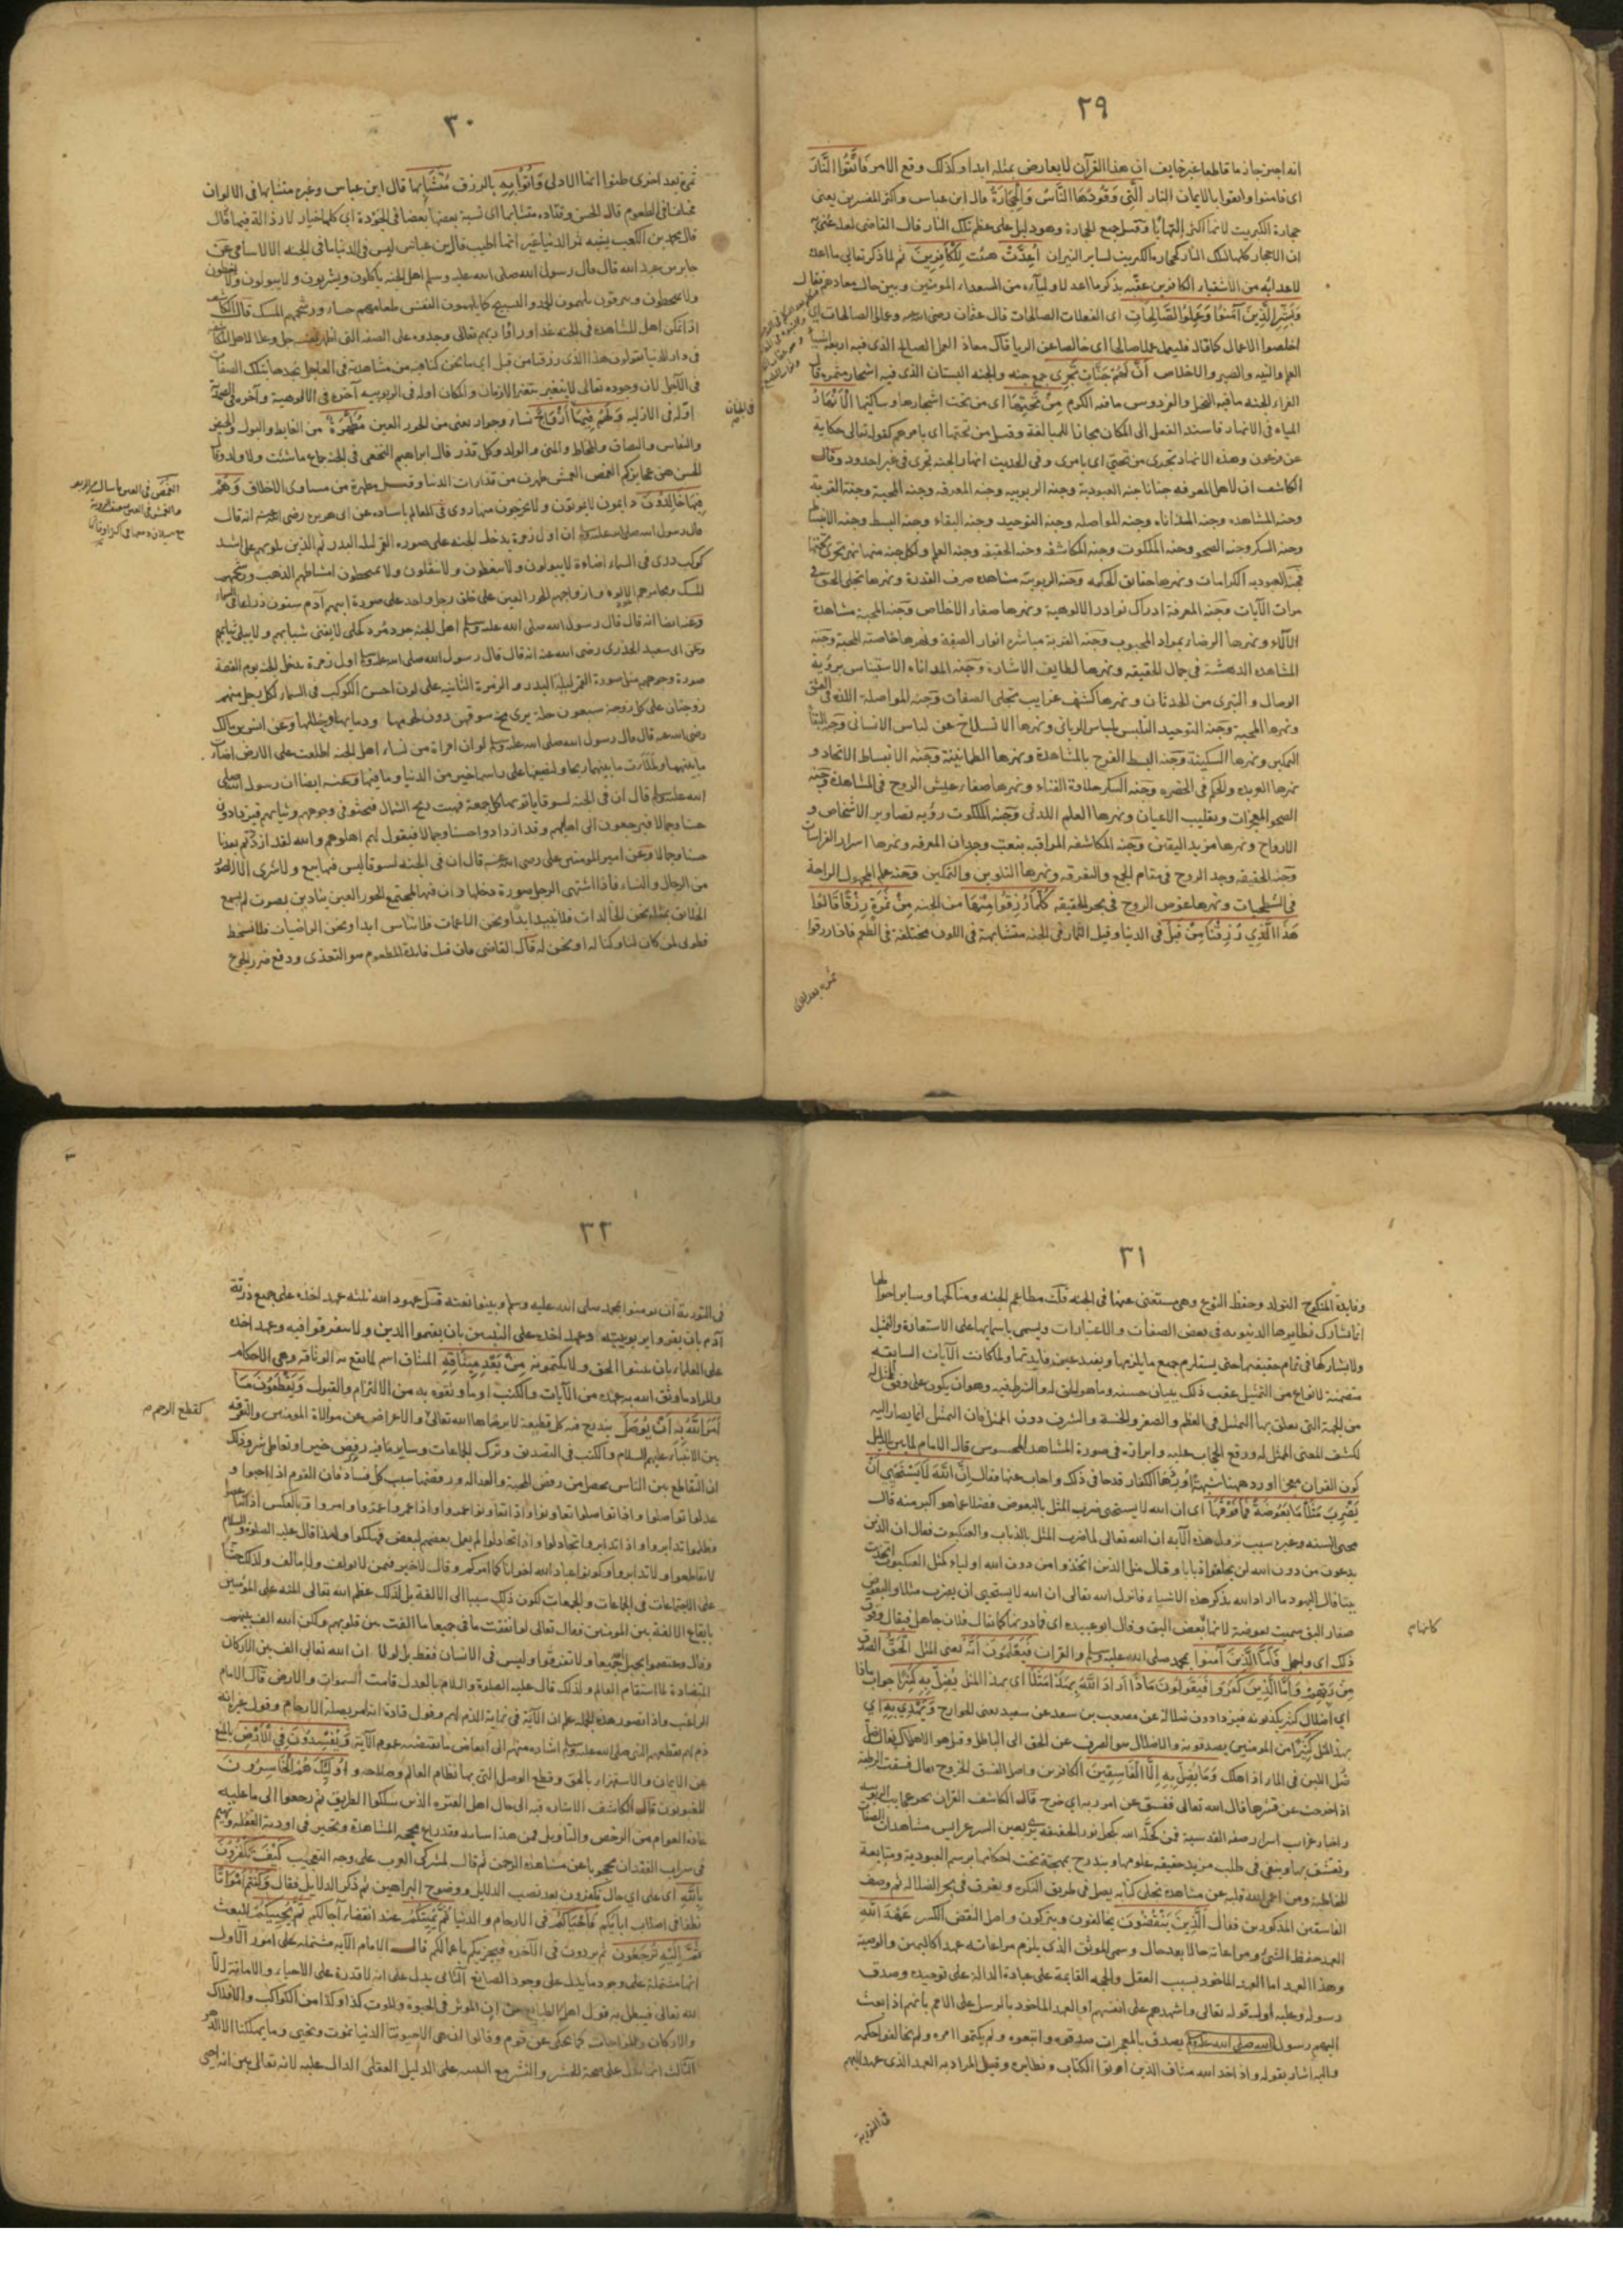 ٢٩
انه اخبر جاز ما قاطعا غير خايف ان هذا القرآن لا يعارض بمثله ابدا وكذلك وقع الامر فَاتَّقُوا النَّارَ
اى فامنوا واتقوا بالايمان النار الَّتِي وَقُودُهَا النَّاسُ وَالْحِجَارَةُ قال ابن عباس واكثر المفسرين يعنى
حجارة الكبريت لانها اكثر التهابا وقيل جميع الحجارة وهو دليل على عظم تلك النار قال القاضى
ان الاحجار كلها لتلك النار كحجارة الكبريت لساير النيران أُعِدَّتْ هيئت لِلْكَافِرِينَ ثم لما ذكر تعالى ما اعد
لاعدائه من الاشقياء الكافرين عقبه بذكر ما اعد لاوليآئه من السعداء المومنين وبين حال معادهم فقال
وَبَشِّرِ الَّذِينَ آمَنُوا وَعَمِلُوا الصَّالِحَاتِ اى الفعلات الصالحات قال عثمان رضى الله عنه وعملوا الصالحات اى
اخلصوا الاعمال كما قال فليعمل عملا صالحا اى خالصا عن الريا قال معاذ العمل الصالح الذى فيه اربعة اشياء
العلم والنيه والصبر والاخلاص أَنَّ لَهُمْ جَنَّاتٍ تَجْرِي جمع جنه والجنه البستان الذى فيه اشجار مثمره قال
الفراء الجنه ما فيه النخل والفردوس ما فيه الكرم مِنْ تَحْتِهَا اى من تحت اشجارها ومساكنها الْأَنْهَارُ
المياه فى الانهار فاسند الفعل الى المكان مجازا للمبالغة وقيل من تحتها اى بامرهم كقوله تعالى حكاية
عن فرعون وهذه الانهار تجرى من تحتى اى بامرى وفى الحديث انهار الجنه تجرى فى غير اخدود وقال
الكاشف ان لاهل المعرفه جنانا جنه العبودية وجنه الربوبيه وجنه المعرفه وجنه المحبة وجنة القربة
وجنه المشاهده وجنه المداناه وجنه المواصله وجنه التوحيد وجنه البقاء وجنه البسط وجنه الانبساط
وجنه السكر وجنه الصحو وجنه الملكوت وجنه المكاشفه وجنه الحقيقه وجنه العلم ولكل جنه منها نهر تجرى تحتها
فجنه العبوديه الكرامات ونهرها حقايق الحكمه وجنه الربوبيه مشاهده صرف القدرة ونهرها تجلى الحق فى
مرات الآيات وجنه المعرفة ادراك نوادر الالوهية ونهرها صفاء الاخلاص وجنه المحبة مشاهدة
الآلاء ونهرها الرضاء بمراد المحبوب وجنه القربة مباشره انوار الصفة ونهرها خاصته المحبة وجنه
المشاهده الدهشة فى جمال الحقيقه ونهرها لطايف الاشارة وجنه المداناه الاستيناس برؤية
الوصال و التبرى من الحدثان ونهرها كشف غرايب تجلى الصفات وجنه المواصله اللذه فى العشق
ونهرها المحبة وجنه التوحيد التلبس بلباس الربانى ونهرها الانسلاخ عن لباس الانسانى وجنه البقاء
التمكين ونهرها السكينة وجنه البسط الفرح بالمشاهدة ونهرها الطمانينة وجنه الانبساط الاتحاد و
نهرها العربده والحكم فى الحضره وجنه السكر حلاوة الفناء ونهرها صفاء عيش الروح فى المشاهدة وجنه
الصحو المعجزات وبقليب الاعيان ونهرها العلم اللدنى وجنه الملكوت رؤيه تصاوير الاشخاص و
الارواح ونهرها مزيد اليقين وجنه المكاشفه المراقبه بنعت وجدان المعرفه ونهرها اسرار الفراسات
وجنه الحقيقه وجد الروح فى مقام الجمع والتفرقه ونهرها التلوين والتمكين وجنه علم المجهول الراحة
فى الشطحيات ونهرها غوص الروح فى بحر الحقيقه كُلَّمَا رُزِقُوا مِنْهَا من الجنه مِنْ ثَمَرَةٍ رِزْقًا قَالُوا
هَذَا الَّذِي رُزِقْنَا مِنْ قَبْلُ فى الدنيا وقيل الثمار فى الجنه متشابهة فى اللون مختلفة فى الطعم فاذا رزقوا
ثمرة بعد اخرى
٣٠
ثمرة بعد اخرى ظنوا انها الاولى وَأُتُوا بِهِ بالرزق مُتَشَابِهًا قال ابن عباس وغيره متشابها فى الالوان
مختلفا فى الطعوم قال الحسن وقتاده متشابها اى تشبه بعضها بعضا فى الجودة اى كلها خيار لا رذالة فيها وقال
قال محمد بن الكعب يشبه ثمر الدنيا غير انها اطيب قال ابن عباس ليس فى الدنيا ما فى الجنه الا الاسامى وعن
جابر بن عبد الله قال قال رسول الله صلى الله عليه وسلم اهل الجنه ياكلون ويشربون ولا يبولون ولا يتغوطون
ولا يتمخطون ولا يبزقون يلهمون الحمد والتسبيح كما يلهمون النفس طعامهم جشاء ورشحهم المسك قال الكاشف
فى دار الدنيا يقولون هذا الذى رزقنا من قبل اى ما نحن كنا فيه من مشاهدته فى العاجل نجدها بتلك الصفات
فى الآجل لان وجوده تعالى لا يتغير بتغير الازمان والمكان اوله فى الربوبيه آخره فى الالوهية وآخره فى الصمدية
اوله فى الازليه وَلَهُمْ فِيهَا أَزْوَاجٌ نساء وجوار يعنى من الحور العين مُطَهَّرَةٌ من الغايط والبول والحيض
والنفاس والبصاق والمخاط والمنى والولد وكل قذر قال ابراهيم النخعى فى الجنه جماع ما شئت ولا ولد وقال
الحسن هن عجايزكم الغمص العمش طهرن من قذارات الدنيا وقيل مطهرة من مساوى الاخلاق وَهُمْ
فِيهَا خَالِدُونَ دايمون لا يموتون ولا يخرجون منها روى فى المعالم باسناده عن ابى هريره رضى الله عنه انه قال
قال رسول الله صلى الله عليه وسلم ان اول زمرة يدخل الجنه على صوره القمر ليله البدر ثم الذين يلونهم على اشد
كوكب درى فى السماء اضاءة لا يبولون ولا يتغوطون ولا يتفلون ولا يتمخطون امشاطهم الذهب ورشحهم
المسك ومجامرهم الالوه وازواجهم الحور العين على خلق رجل واحد على صورة ابيهم آدم ستون ذراعا فى السماء
وعنه ايضا انه قال قال رسول الله صلى الله عليه وسلم اهل الجنه جرد مرد كحلى لا يفنى شبابهم ولا يبلى ثيابهم
وعن ابى سعيد الخدرى رضى الله عنه انه قال قال رسول الله صلى الله عليه وسلم اول زمرة يدخل الجنه يوم القيمة
صورة وجوههم مثل صورة القمر ليلة البدر و الزمرة الثانيه على لون احسن الكوكب فى السماء لكل رجل منهم
زوجتان على كل زوجة سبعون حلة يرى مخ سوقهن دون لحومها ودمايها وحللها وعن انس بن مالك
رضى الله عنه قال قال رسول الله صلى الله عليه وسلم لو ان امراة من نساء اهل الجنه اطلعت على الارض لاضاءت
ما بينهما ولملأت ما بينهما ريحا ولنصيفها على راسها خير من الدنيا وما فيها وعنه ايضا ان رسول الله صلى
الله عليه وسلم قال ان فى الجنه لسوقا ياتونها كل جمعة فتهب ريح الشمال فتحثو فى وجوههم وثيابهم فيزدادون
حسنا وجمالا فيرجعون الى اهليهم وقد ازدادوا حسنا وجمالا فيقول لهم اهلوهم والله لقد ازددتم بعدنا
حسنا وجمالا وعن امير المومنين على رضى الله عنه قال ان فى الجنه لسوقا ليس فيها بيع ولا شرى الا الصور
من الرجال والنساء فاذا اشتهى الرجل صورة دخلها وان فيها لمجتمع الحور العين ينادين بصوت لم يسمع
الخلايق بمثله نحن الخالدات فلا نبيد ابدا ونحن الناعمات فلا نباس ابدا ونحن الراضيات فلا نسخط
فطوبى لمن كان لنا وكنا له او نحن له قال القاضى فان قيل فايدة المطعوم هو التغذى ودفع ضرر الجوع
٣١
وفايدة المنكوح التولد وحفظ النوع وهى مستغنى عنها فى الجنه قلت مطاعم الجنه ومناكحها وساير احوالها
انما تشارك نظايرها الدنيويه فى بعض الصفات والاعتبارات ويسمى باسمايها على الاستعارة والتمثيل
ولا تشاركها فى تمام حقيقتها حتى يستلزم جميع ما يلزمها ويفيد عين فايدتها ولما كانت الآيات السابقه
متضمنة لانواع من التمثيل عقب ذلك ببيان حسنه وما هو الحق له والشرط فيه وهو ان يكون على وفق الممثل له
من الجهة التى تعلق بها التمثيل فى العظم والصغر والخسة والشرف دون الممثل فان التمثيل انما يصار اليه
لكشف المعنى الممثل له ورفع الحجاب عليه وابرازه فى صورة المشاهد المحسوس قال الامام لما بين بالدليل
كون القران معجزا اورد ههنا شبهة اوردها الكفار قدحا فى ذلك واجاب عنها فقال إِنَّ اللَّهَ لَا يَسْتَحْيِي أَنْ
يَضْرِبَ مَثَلًا مَا بَعُوضَةً فَمَا فَوْقَهَا اى ان الله لا يستحى ضرب المثل بالبعوض فضلا عما هو اكبر منه قال
محيى السنه وغيره سبب نزول هذه الآيه ان الله تعالى لما ضرب المثل بالذباب والعنكبوت فقال ان الذين
يدعون من دون الله لن يخلقوا ذبابا وقال مثل الذين اتخذوا من دون الله اولياء كمثل العنكبوت اتخذت
بيتا قال اليهود ما اراد الله بذكر هذه الاشياء فانزل الله تعالى ان الله لا يستحيى ان يضرب مثلا والبعوض
صغار البق سميت بعوضة لانها بعض البق وقال ابو عبيده اى فما دونها كما يقال فلان جاهل فيقال وفوق
ذلك اى واجهل فَأَمَّا الَّذِينَ آمَنُوا بمحمد صلى الله عليه وسلم والقران فَيَعْلَمُونَ أَنَّهُ يعنى المثل الْحَقُّ الصدق
مِنْ رَبِّهِمْ وَأَمَّا الَّذِينَ كَفَرُوا فَيَقُولُونَ مَاذَا أَرَادَ اللَّهُ بِهَذَا مَثَلًا اى بهذا المثل يُضِلُّ بِهِ كَثِيرًا جواب ماذا
اى اضلال كثير يكذبونه فيزدادون ضلالة عن مصعب بن سعد عن سعيد يعنى الخوارج وَيَهْدِي بِهِ اى
بهذا المثل كَثِيرًا من المومنين يصدقونه والاضلال هو الصرف عن الحق الى الباطل وقيل هو الاهلاك يقال ضل
ضل اللبن فى الماء اذا هلك وَمَا يُضِلُّ بِهِ إِلَّا الْفَاسِقِينَ الكافرين واصل الفسق الخروج يقال فسقت الرطبة
اذا خرجت عن قشرها قال الله تعالى ففسق عن امر ربه اى خرج قال الكاشف القران بحر عجايب الربوبيه
وتعشق بها ويبقى فى طلب مزيد حقيقه علومها ويندرج بمهجته تحت احكامها برسم العبودية ومتابعة
الخاطبة ومن اعمى الله قلبه عن مشاهدة تجلى كتابه يضل فى طريق النكره ويغرق فى بحر الضلاله ثم وصف
الفاسقين المذكورين فقال الَّذِينَ يَنْقُضُونَ يخالفون ويتركون واصل النقض الكسر عَهْدَ اللَّهِ
العهد حفظ الشئ ومراعاته حالا بعد حال وسمى الموثق الذى يلزم مراعاته عهدا كاليمين والوصية
وهذا العهد اما العهد الماخوذ بسبب العقل والحجه القايمة على عبادة الدالة على توحيده وصدق
رسوله وعليه اول قوله تعالى واشهدهم على انفسهم او العهد الماخوذ بالرسل على الامم بانهم اذا بعث
اليهم رسول الله صلى الله عليه وسلم يصدق بالمعجزات صدقوه واتبعوه ولم يكتموا امره ولم يخالفوا حكمه
واليه اشار بقوله واذ اخذ الله ميثاق الذين اوتوا الكتاب ونظايره وقيل المراد به العهد الذى عهد اليهم
فى التورية
كانهام
٣٢
فى التورية ان يومنوا بمحمد صلى الله عليه وسلم وبينوا نعته قيل عهود الله ثلثه عهد اخذه على جميع ذرية
آدم بان يقروا بربوبيته وعهد اخذه على النبيين بان يقيموا الدين ولا يتفرقوا فيه وعهد اخذه
على العلماء بان يبينوا الحق ولا يكتمونه مِنْ بَعْدِ مِيثَاقِهِ الميثاق اسم لما يقع به الوثاقه وهى الاحكام
والمراد ما وثق الله به عهده من الآيات والكتب او ما وثقوه به من الالتزام والقبول وَيَقْطَعُونَ مَا
أَمَرَ اللَّهُ بِهِ أَنْ يُوصَلَ يندرج فيه كل قطيعة لا يرضاها الله تعالى والاعراض عن موالاة المومنين والتفرقه
بين الانبياء عليهم السلام والكتب فى التصديق وترك الجماعات وساير ما فيه رفض خير او تعاطى شر وذلك
ان التقاطع بين الناس يحصل من رفض المحبة والعداله ورفضها سبب كل فساد فان القوم اذا احبوا و
عدلوا تواصلوا واذا تواصلوا تعاونوا واذا تعاونوا عمروا واذا عمروا عمروا وامروا وبالعكس اذا تباغضوا
وظلموا تدابروا واذا تدابروا تخاذلوا واذا تخاذلوا لم يعل بعضهم لبعض فهلكوا ولهذا قال عليه الصلوة والسلام
لا تقاطعوا ولا تدابروا وكونوا عباد الله اخوانا كما امركم وقال لا خير فيمن لا يولف ولا يالف ولذلك حثنا
على الاجتماعات فى الجماعات والجمعات لكون ذلك سببا الى الالفة بل لذلك عظم الله تعالى المنه على المؤمنين
بايقاع الالفة بين المومنين فقال تعالى لو انفقت ما فى جميعا ما الفت بين قلوبهم ولكن الله الف بينهم
وقال واعتصموا بحبل الله جميعا ولا تفرقوا وليس فى الانسان فقط بل لولا ان الله تعالى الف بين الاركان
المتضادة لما استقام العالم ولذلك قال عليه الصلوة والسلام بالعدل قامت السموات والارض قال الامام
ذم لهم بقطعهم النبى صلى الله عليه وسلم اشاره منهم الى ابعاض ما يقتضيه عموم الآية وَيُفْسِدُونَ فِي الْأَرْضِ بالمنع
عن الايمان والاستهزاء بالحق وقطع الوصل التى بها نظام العالم وصلاحه و أُولَئِكَ هُمُ الْخَاسِرُونَ
المغبونون قال الكاشف الاشاره فيه الى حال اهل الفتره الذين سلكوا الطريق ثم رجعوا الى ما عليه
فى سراب الفقدان محجوبا عن مشاهده الرحمن ثم قال لمشركى العرب على وجه التعجب كَيْفَ تَكْفُرُونَ
بِاللَّهِ اى على اى حال تكفرون بعد نصب الدلايل ووضوح البراهين ثم ذكر الدلايل فقال وَكُنْتُمْ أَمْوَاتًا
نطفا فى اصلاب ابايكم فَأَحْيَاكُمْ فى الارحام والدنيا ثُمَّ يُمِيتُكُمْ عند انقضاء آجالكم ثُمَّ يُحْيِيكُمْ للبعث
ثُمَّ إِلَيْهِ تُرْجَعُونَ ثم يردون فى الآخره فيجزيكم باعمالكم قال الامام الآيه مشتمله على امور الاول
انها مشتملة على وجود ما يدل على وجود الصانع الثانى يدل على انه لا قدرة على الاحياء والاماتة الا
لله تعالى فيبطل به قول اهل الطبايع من ان الموثر فى الحيوة والموت كذا وكذا من الكواكب والافلاك
والاركان والمزاجات كما يحكى عن قوم وقالوا ان هى الا حيوتنا الدنيا نموت ونحيى وما يهلكنا الا الدهر
الثالث انها تدل على صحة الحشر والنشر مع التنبيه على الدليل العقلى الدال عليه لانه تعالى بين انه احيى
كقطع الرحم